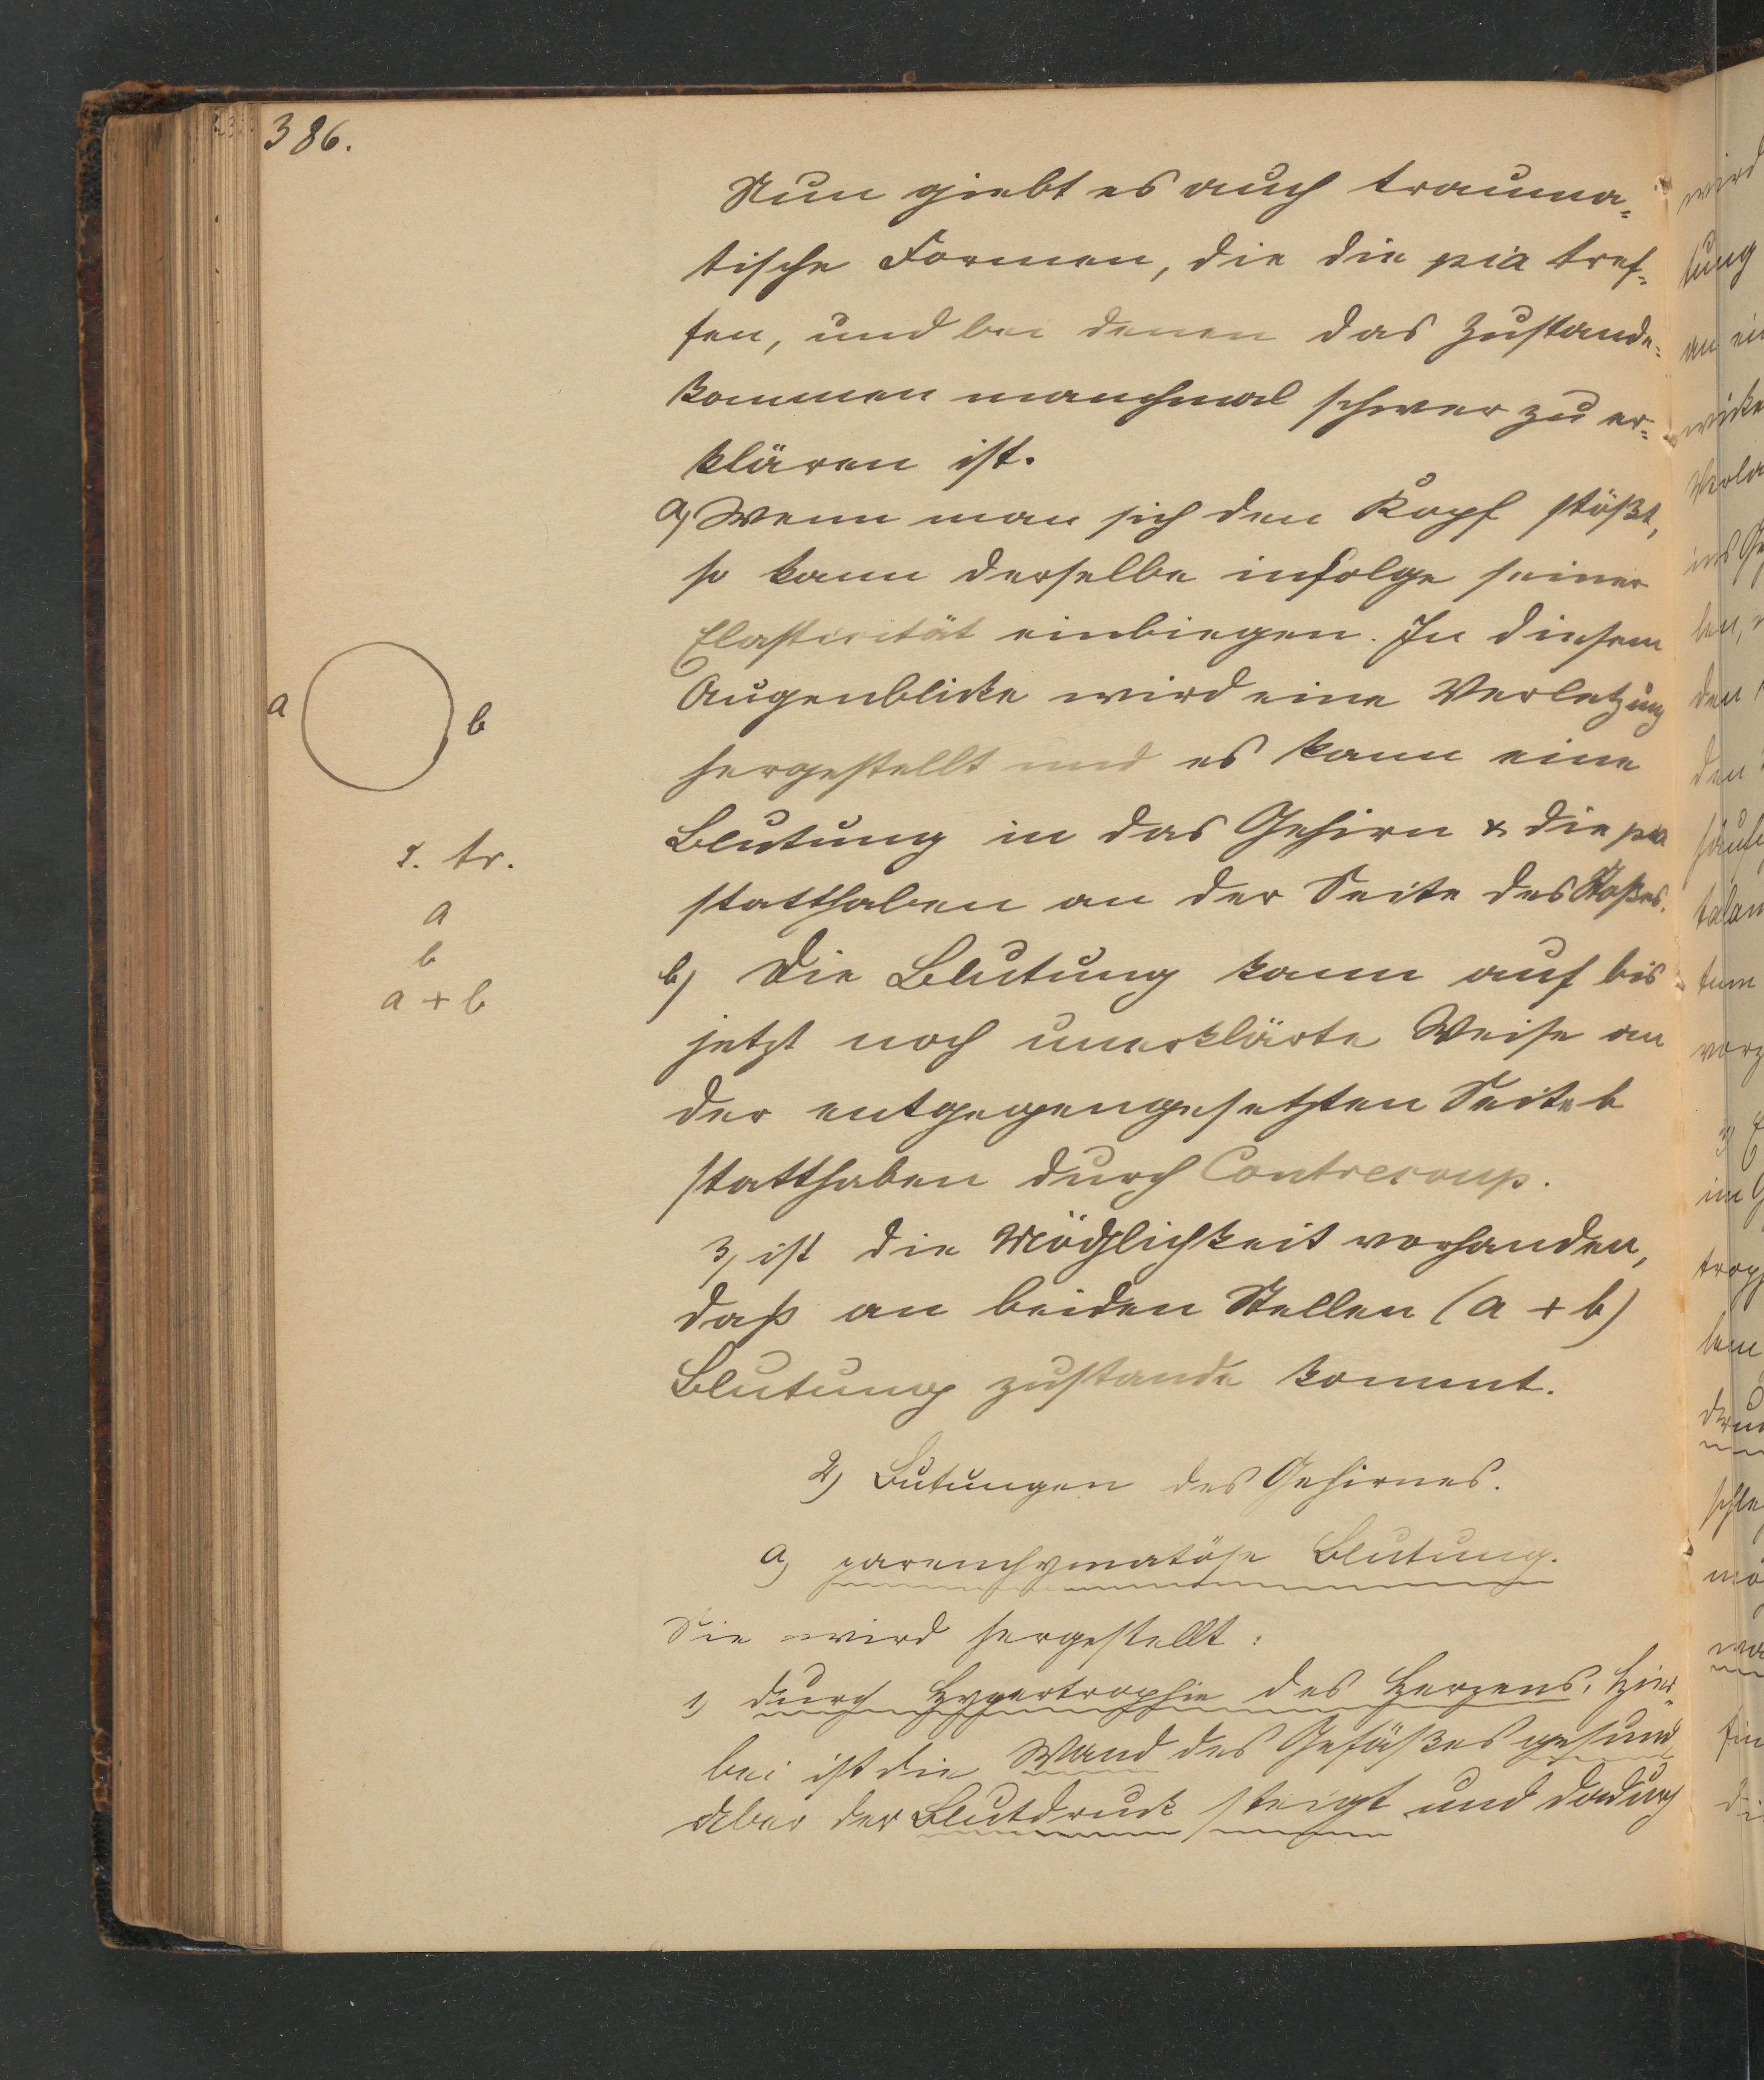 386.
Nun giebt es auch trauma=
tische Formen, die die pia tref=
fen, und bei denen das Zustande=
kommen manchmal schwer zu er=
klären ist.
a) Wenn man sich den Kopf stößt,
so kann derselbe infolge seiner
Elasticität einbiegen. In diesem
Augenblicke wird eine Verletzung
hergestellt und es kann eine
Blutung in das Gehirn & die pia
statthaben an der Seite des Stoßes.
b) Die Blutung kann auf bis
jetzt noch unerklärte Weise an
der entgegengesetzten Seite b
statthaben durch Contrecoup.
3, ist die Möglichkeit vorhanden,
daß an beiden Stellen (a + b)
Blutung zustande kommt.
2) Butungen des Gehirnes.
a) parenchymatöse Blutung.
Sie wird hergestellt:
1) durch Hypertrophie des Herzens. Hier=
bei ist die Wand des Gefäßes gesund
aber der Blutdruck steigt und dadurch
a
b
tr.
a
b
a + b